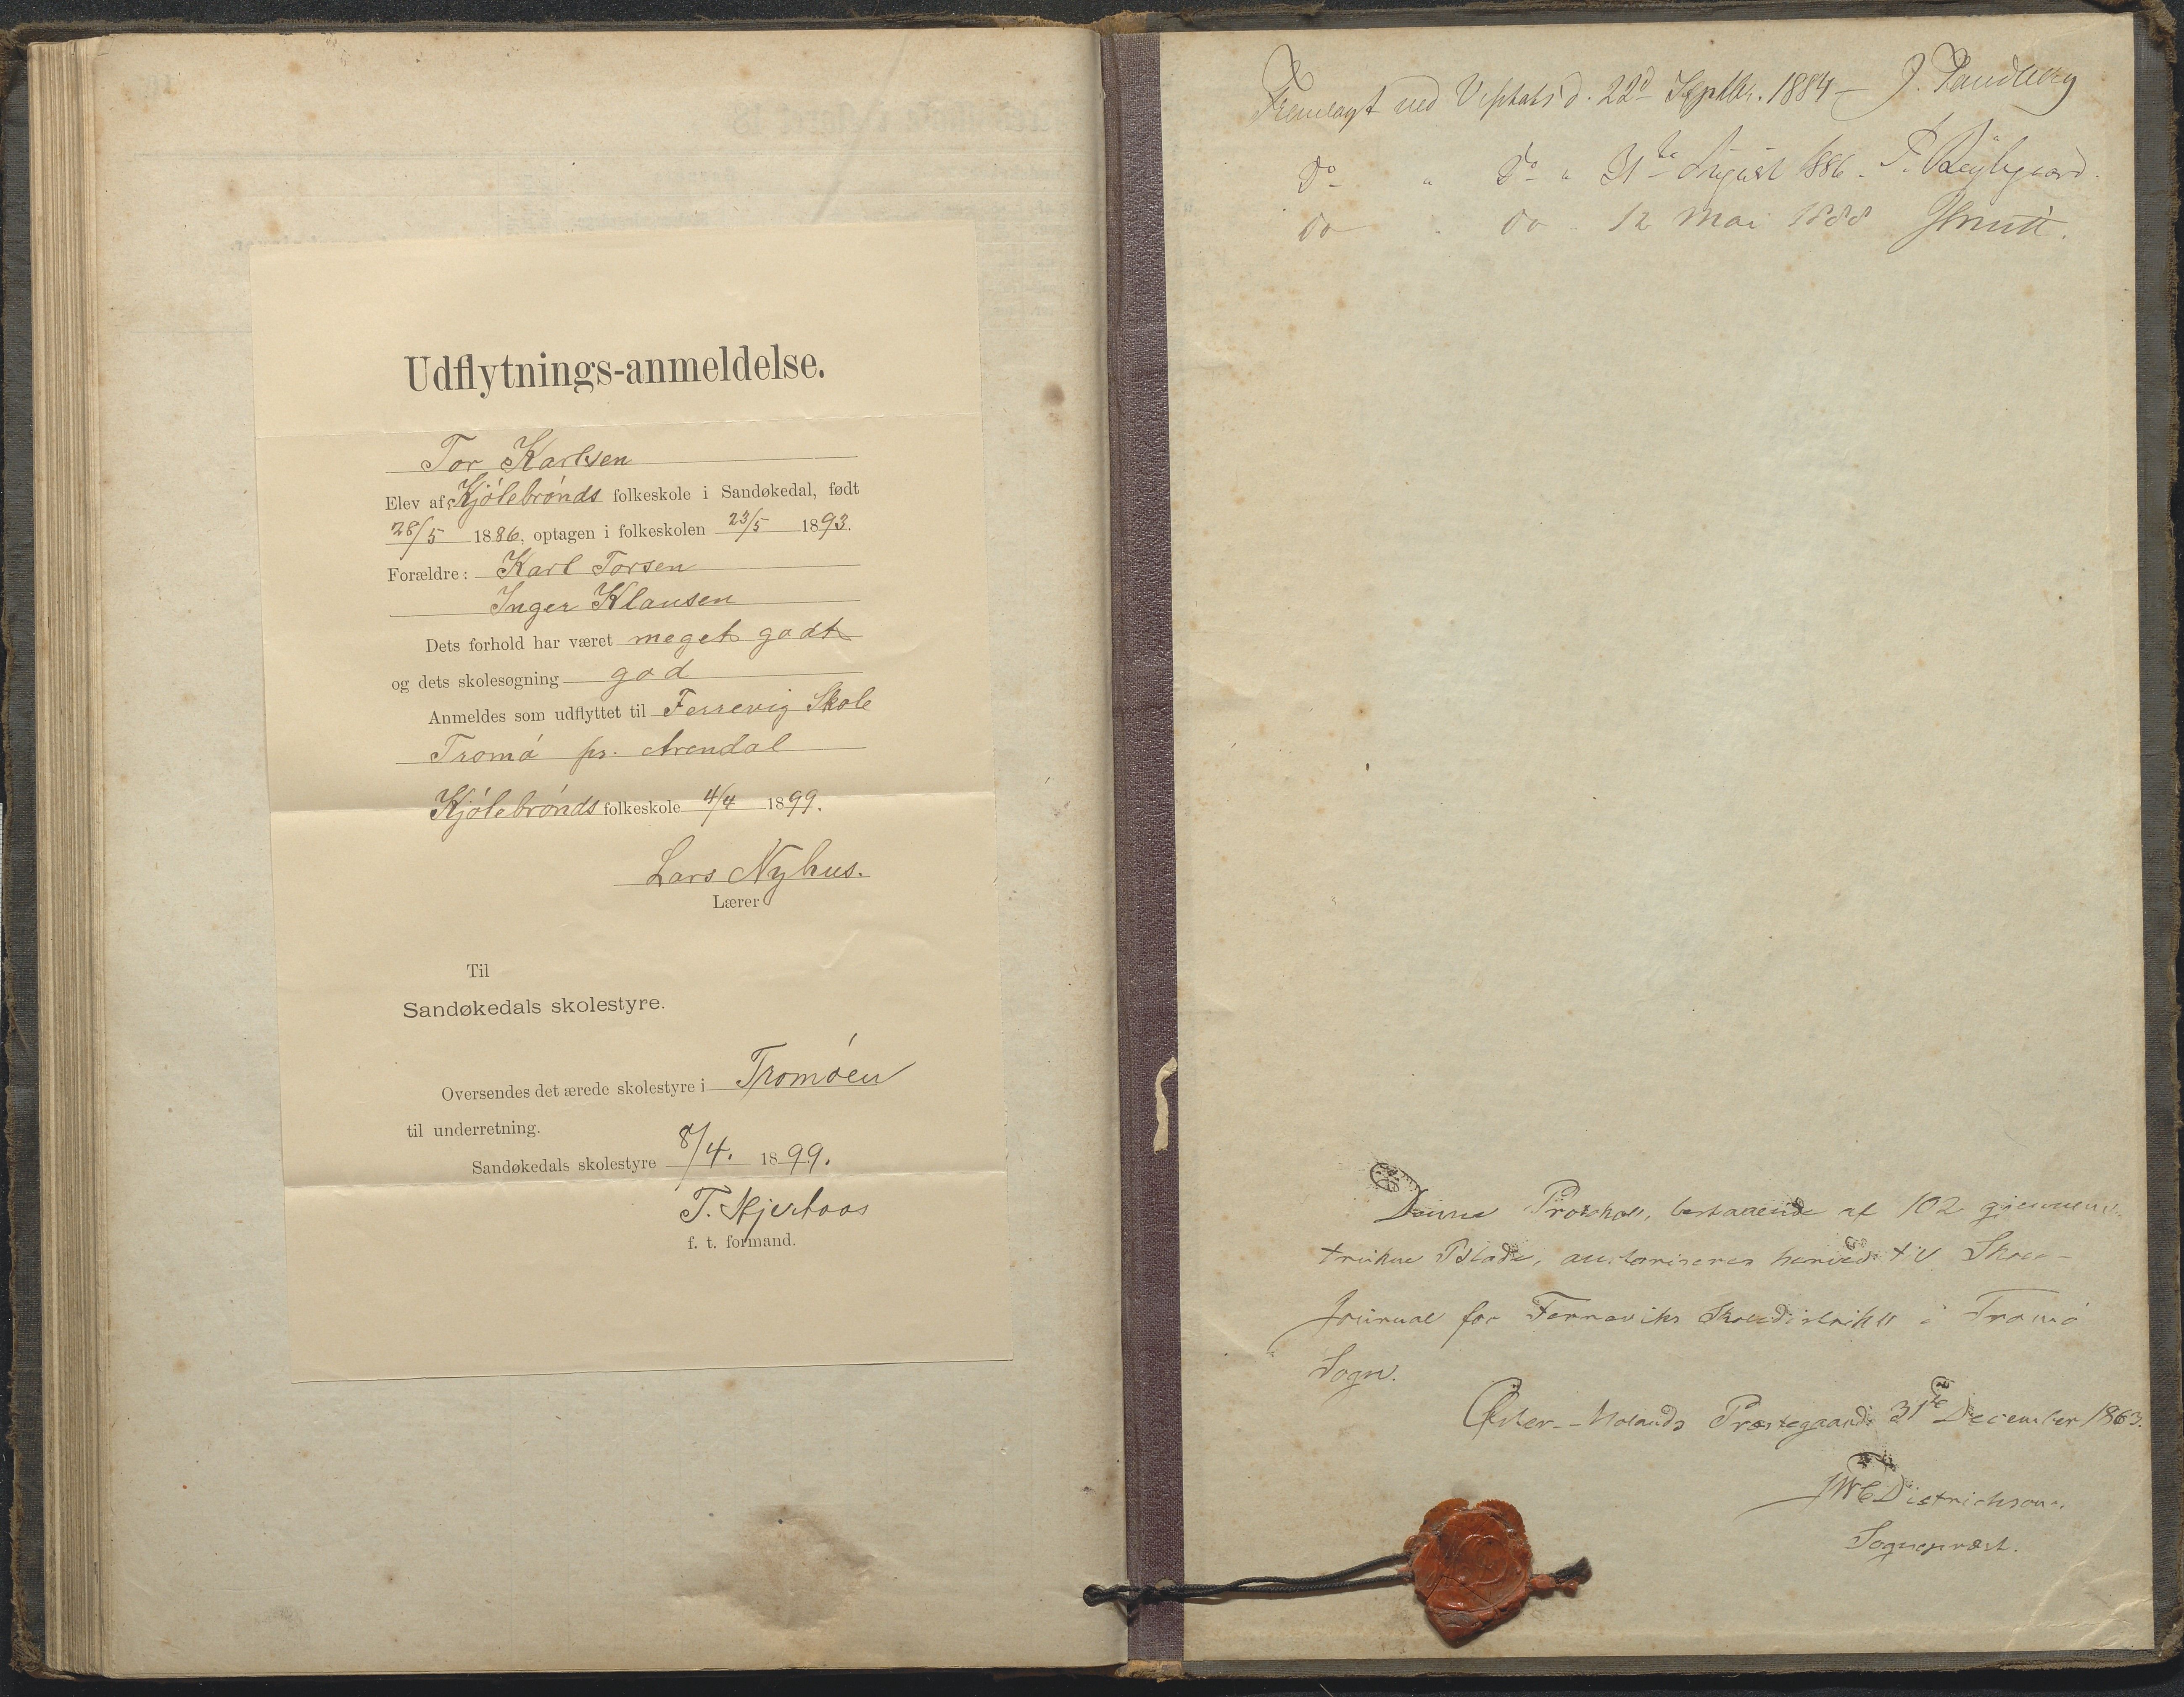 Udflytnings-anmeldelse.
Tor Karlsen
Elev af Kjølebrønds folkeskole i Sandøkedal, født
28/5 1886, optagen i folkeskolen 23/5 1893.
Forældre: Karl Torsen
Inger Klausen
Dets forhold har været meget godt
og dets skolesøgning god
Anmeldes som udflyttet til Færrevig Skole
Tromø pr. Arendal
Kjølebrønds folkeskole 4/4 1899.
Lars Nyhus.
Lærer
Til
Sandøkedals skolestyre.
Oversendes det ærede skolestyre i Tromøen
til underretning.
Sandøkedals skolestyre 8/4. 1899.
f. t. formand.
Fremlagt ved d. 22d Septbr. 1884 - J. Sandberg
Do " Do " 31te August 1886.
do " do " 12 Mai 1888
Denne Protokol, bestaaende af 102 gjennem-
trukne Blade, autoriseres herved til Skole-
Journal for Færreviks Skoledistrikt i Tromø
Sogn.
Øster-Molands Præstegaard 31te December 1863.
Sognepræst.